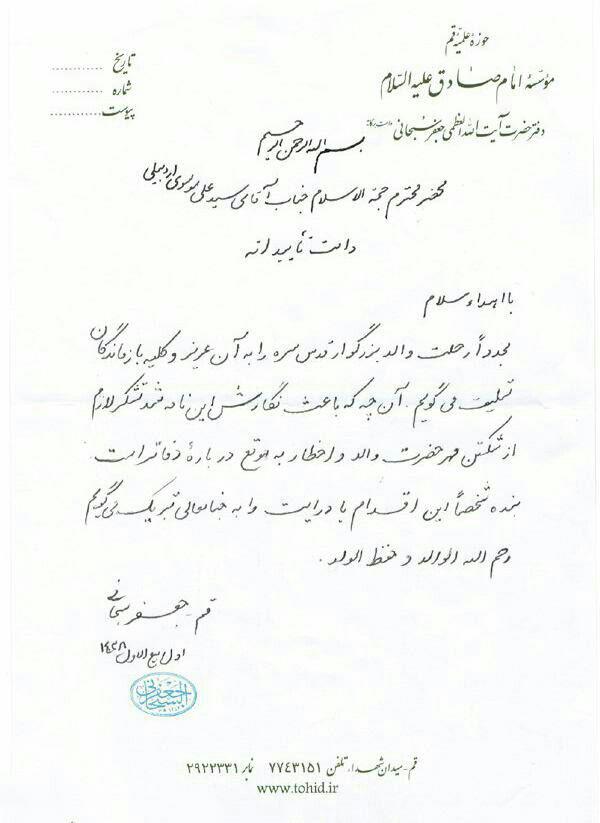 حوزهٔ علمیهٔ قم
مؤسّسهٔ امام صادق علیه السّلام
دفتر حضرت آیت الله العظمی جعفر سبحانی دامت برکاته
تاریخ ..............
شماره ..............
پیوست ..............
بسم الله الرحمن الرحیم
محضر محترم حجة الاسلام جناب آقای سید علی موسوی اردبیلی
دامت تأییداته
با اهداء سلام
مجدداً رحلت والد بزرگوار قدس سره را به آن عزیز و کلیه بازماندگان
تسلیت می گویم. آن چه که باعث نگارش این نامه شد تشکر لازم
از شکستن مهر حضرت والد و اخطار به موقع در بارهٔ دفاتر است
بنده شخصاً این اقدام با درایت را به جنابعالی تبریک می گویم
رحم الله الوالد و حفظ الولد.
قم - جعفر سبحانی
اول ربیع الاول ۱۴۳۸
جعفر السبحانی
قم - میدان شهدا، تلفن ۷۷۴۳۱۵۱ نمابر ۲۹۲۲۳۳۱
www.tohid.ir